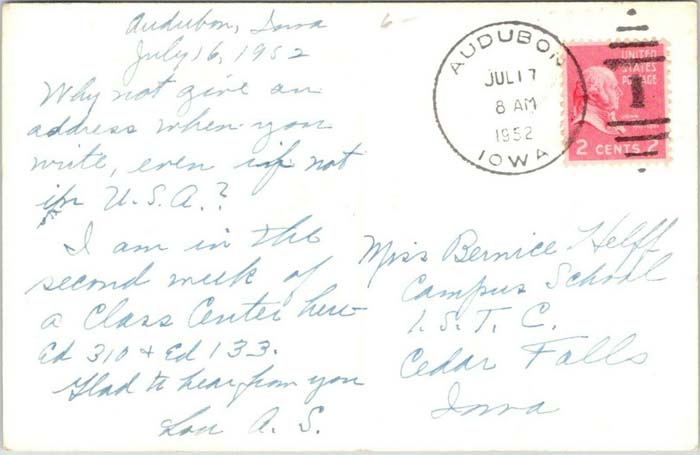 Audubon, Iowa
July 16, 1952
Why not give an
address when you
write, even if not
in U.S.A.?
I am in the
second week of
a Class Center here
Ed 310 & Ed 133.
Glad to hear from you
Lou A. S.
6-
AUDUBON
JUL 17
8 AM
1952
IOWA
UNITED
STATES
POSTAGE
1
2 CENTS 2
Miss Bernice Helff
Campus School
I.S.T.C.
Cedar Falls
Iowa